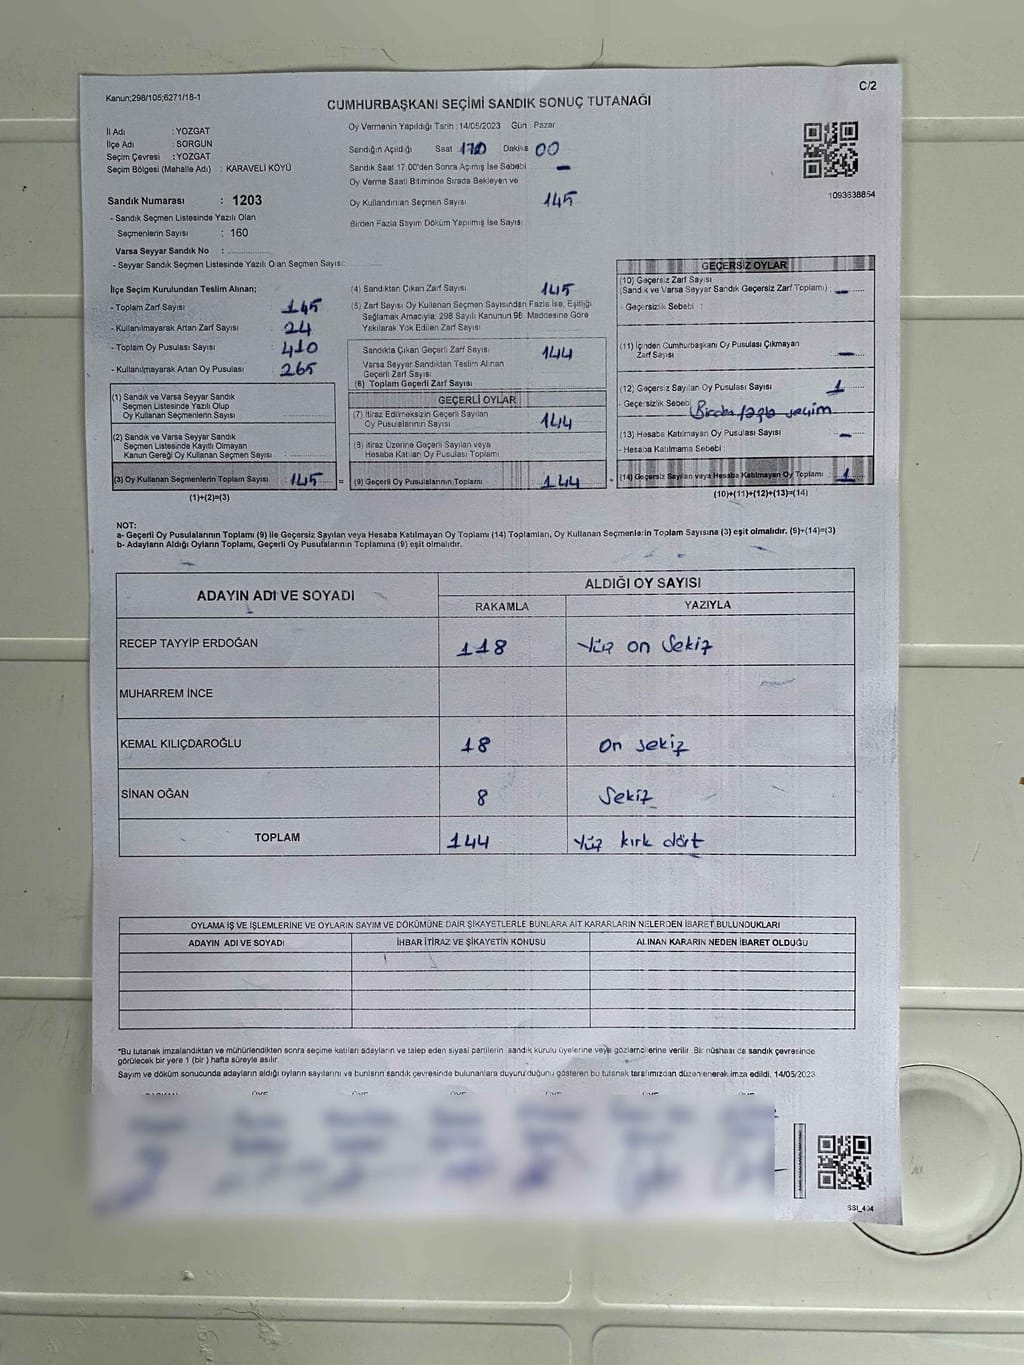 Kanun;298/105;6271/18-1
C/2
CUMHURBAŞKANI SEÇİMİ SANDIK SONUÇ TUTANAĞI
İl Adı : YOZGAT
İlçe Adı : SORGUN
Seçim Çevresi : YOZGAT
Seçim Bölgesi (Mahalle Adı) : KARAVELİ KÖYÜ
Sandık Numarası : 1203
- Sandık Seçmen Listesinde Yazılı Olan
Seçmenlerin Sayısı : 160
Varsa Seyyar Sandık No :
- Seyyar Sandık Seçmen Listesinde Yazılı Olan Seçmen Sayısı:
Oy Vermenin Yapıldığı Tarih : 14/05/2023 Gün : Pazar
Sandığın Açıldığı Saat Dakika 00
Sandık Saat 17:00'den Sonra Açımış İse Sebebi –
Oy Verme Saati Bitiminde Sırada Bekleyen ve
Oy Kullandırılan Seçmen Sayısı 145
Birden Fazla Sayım Döküm Yapılmış İse Sayısı
1093638854
İlçe Seçim Kurulundan Teslim Alınan;
- Toplam Zarf Sayısı : 145
- Kullanılmayarak Artan Zarf Sayısı : 24
- Toplam Oy Pusulası Sayısı : 410
- Kullanılmayarak Artan Oy Pusulası : 265
(1) Sandık ve Varsa Seyyar Sandık
Seçmen Listesinde Yazılı Olup
Oy Kullanan Seçmenlerin Sayısı
(2) Sandık ve Varsa Seyyar Sandık
Seçmen Listesinde Kayıtlı Olmayan
Kanun Gereği Oy Kullanan Seçmen Sayısı
(3) Oy Kullanan Seçmenlerin Toplam Sayısı 145 =
(1)+(2)=(3)
(4) Sandıktan Çıkan Zarf Sayısı 145
(5) Zarf Sayısı Oy Kullanan Seçmen Sayısından Fazla İse, Eşitliği
Sağlamak Amacıyla; 298 Sayılı Kanunun 98. Maddesine Göre
Yakılarak Yok Edilen Zarf Sayısı
Sandıkta Çıkan Geçerli Zarf Sayısı 144
Varsa Seyyar Sandıktan Teslim Alınan
Geçerli Zarf Sayısı
(6) Toplam Geçerli Zarf Sayısı
GEÇERLİ OYLAR
(7) İtiraz Edilmeksizin Geçerli Sayılan
Oy Pusulalarının Sayısı 144
(8) İtiraz Üzerine Geçerli Sayılan veya
Hesaba Katılan Oy Pusulası Toplamı
(9) Geçerli Oy Pusulalarının Toplamı 144 +
GEÇERSİZ OYLAR
(10) Geçersiz Zarf Sayısı
(Sandık ve Varsa Seyyar Sandık Geçersiz Zarf Toplamı) : –
- Geçersizlik Sebebi :
(11) İçinden Cumhurbaşkanı Oy Pusulası Çıkmayan
Zarf Sayısı –
(12) Geçersiz Sayılan Oy Pusulası Sayısı 1
- Geçersizlik Sebebi Birden fazla seçim
(13) Hesaba Katılmayan Oy Pusulası Sayısı –
- Hesaba Katılmama Sebebi :
(14) Geçersiz Sayılan veya Hesaba Katılmayan Oy Toplamı 1
(10)+(11)+(12)+(13)=(14)
NOT:
a- Geçerli Oy Pusulalarının Toplamı (9) ile Geçersiz Sayılan veya Hesaba Katılmayan Oy Toplamı (14) Toplamları, Oy Kullanan Seçmenlerin Toplam Sayısına (3) eşit olmalıdır. (9)+(14)=(3)
b- Adayların Aldığı Oyların Toplamı, Geçerli Oy Pusulalarının Toplamına (9) eşit olmalıdır.
ADAYIN ADI VE SOYADI
ALDIĞI OY SAYISI
RAKAMLA YAZIYLA
RECEP TAYYİP ERDOĞAN 118 Yüz on Sekiz
MUHARREM İNCE
KEMAL KILIÇDAROĞLU 18 On sekiz
SİNAN OĞAN 8 Sekiz
TOPLAM 144 Yüz kırk dört
OYLAMA İŞ VE İŞLEMLERİNE VE OYLARIN SAYIM VE DÖKÜMÜNE DAİR ŞİKAYETLERLE BUNLARA AİT KARARLARIN NELERDEN İBARET BULUNDUKLARI
ADAYIN ADI VE SOYADI İHBAR İTİRAZ VE ŞİKAYETİN KONUSU ALINAN KARARIN NEDEN İBARET OLDUĞU
*Bu tutanak imzalandıktan ve mühürlendikten sonra seçime katılan adayların ve talep eden siyasi partilerin sandık kurulu üyelerine veya gözlemcilerine verilir. Bir nüshası da sandık çevresinde
görülecek bir yere 1 (bir) hafta süreyle asılır.
Sayım ve döküm sonucunda adayların aldığı oyların sayılarını ve bunların sandık çevresinde bulunanlara duyurulduğunu gösteren bu tutanak tarafımızdan düzenlenerek imza edildi. 14/05/2023